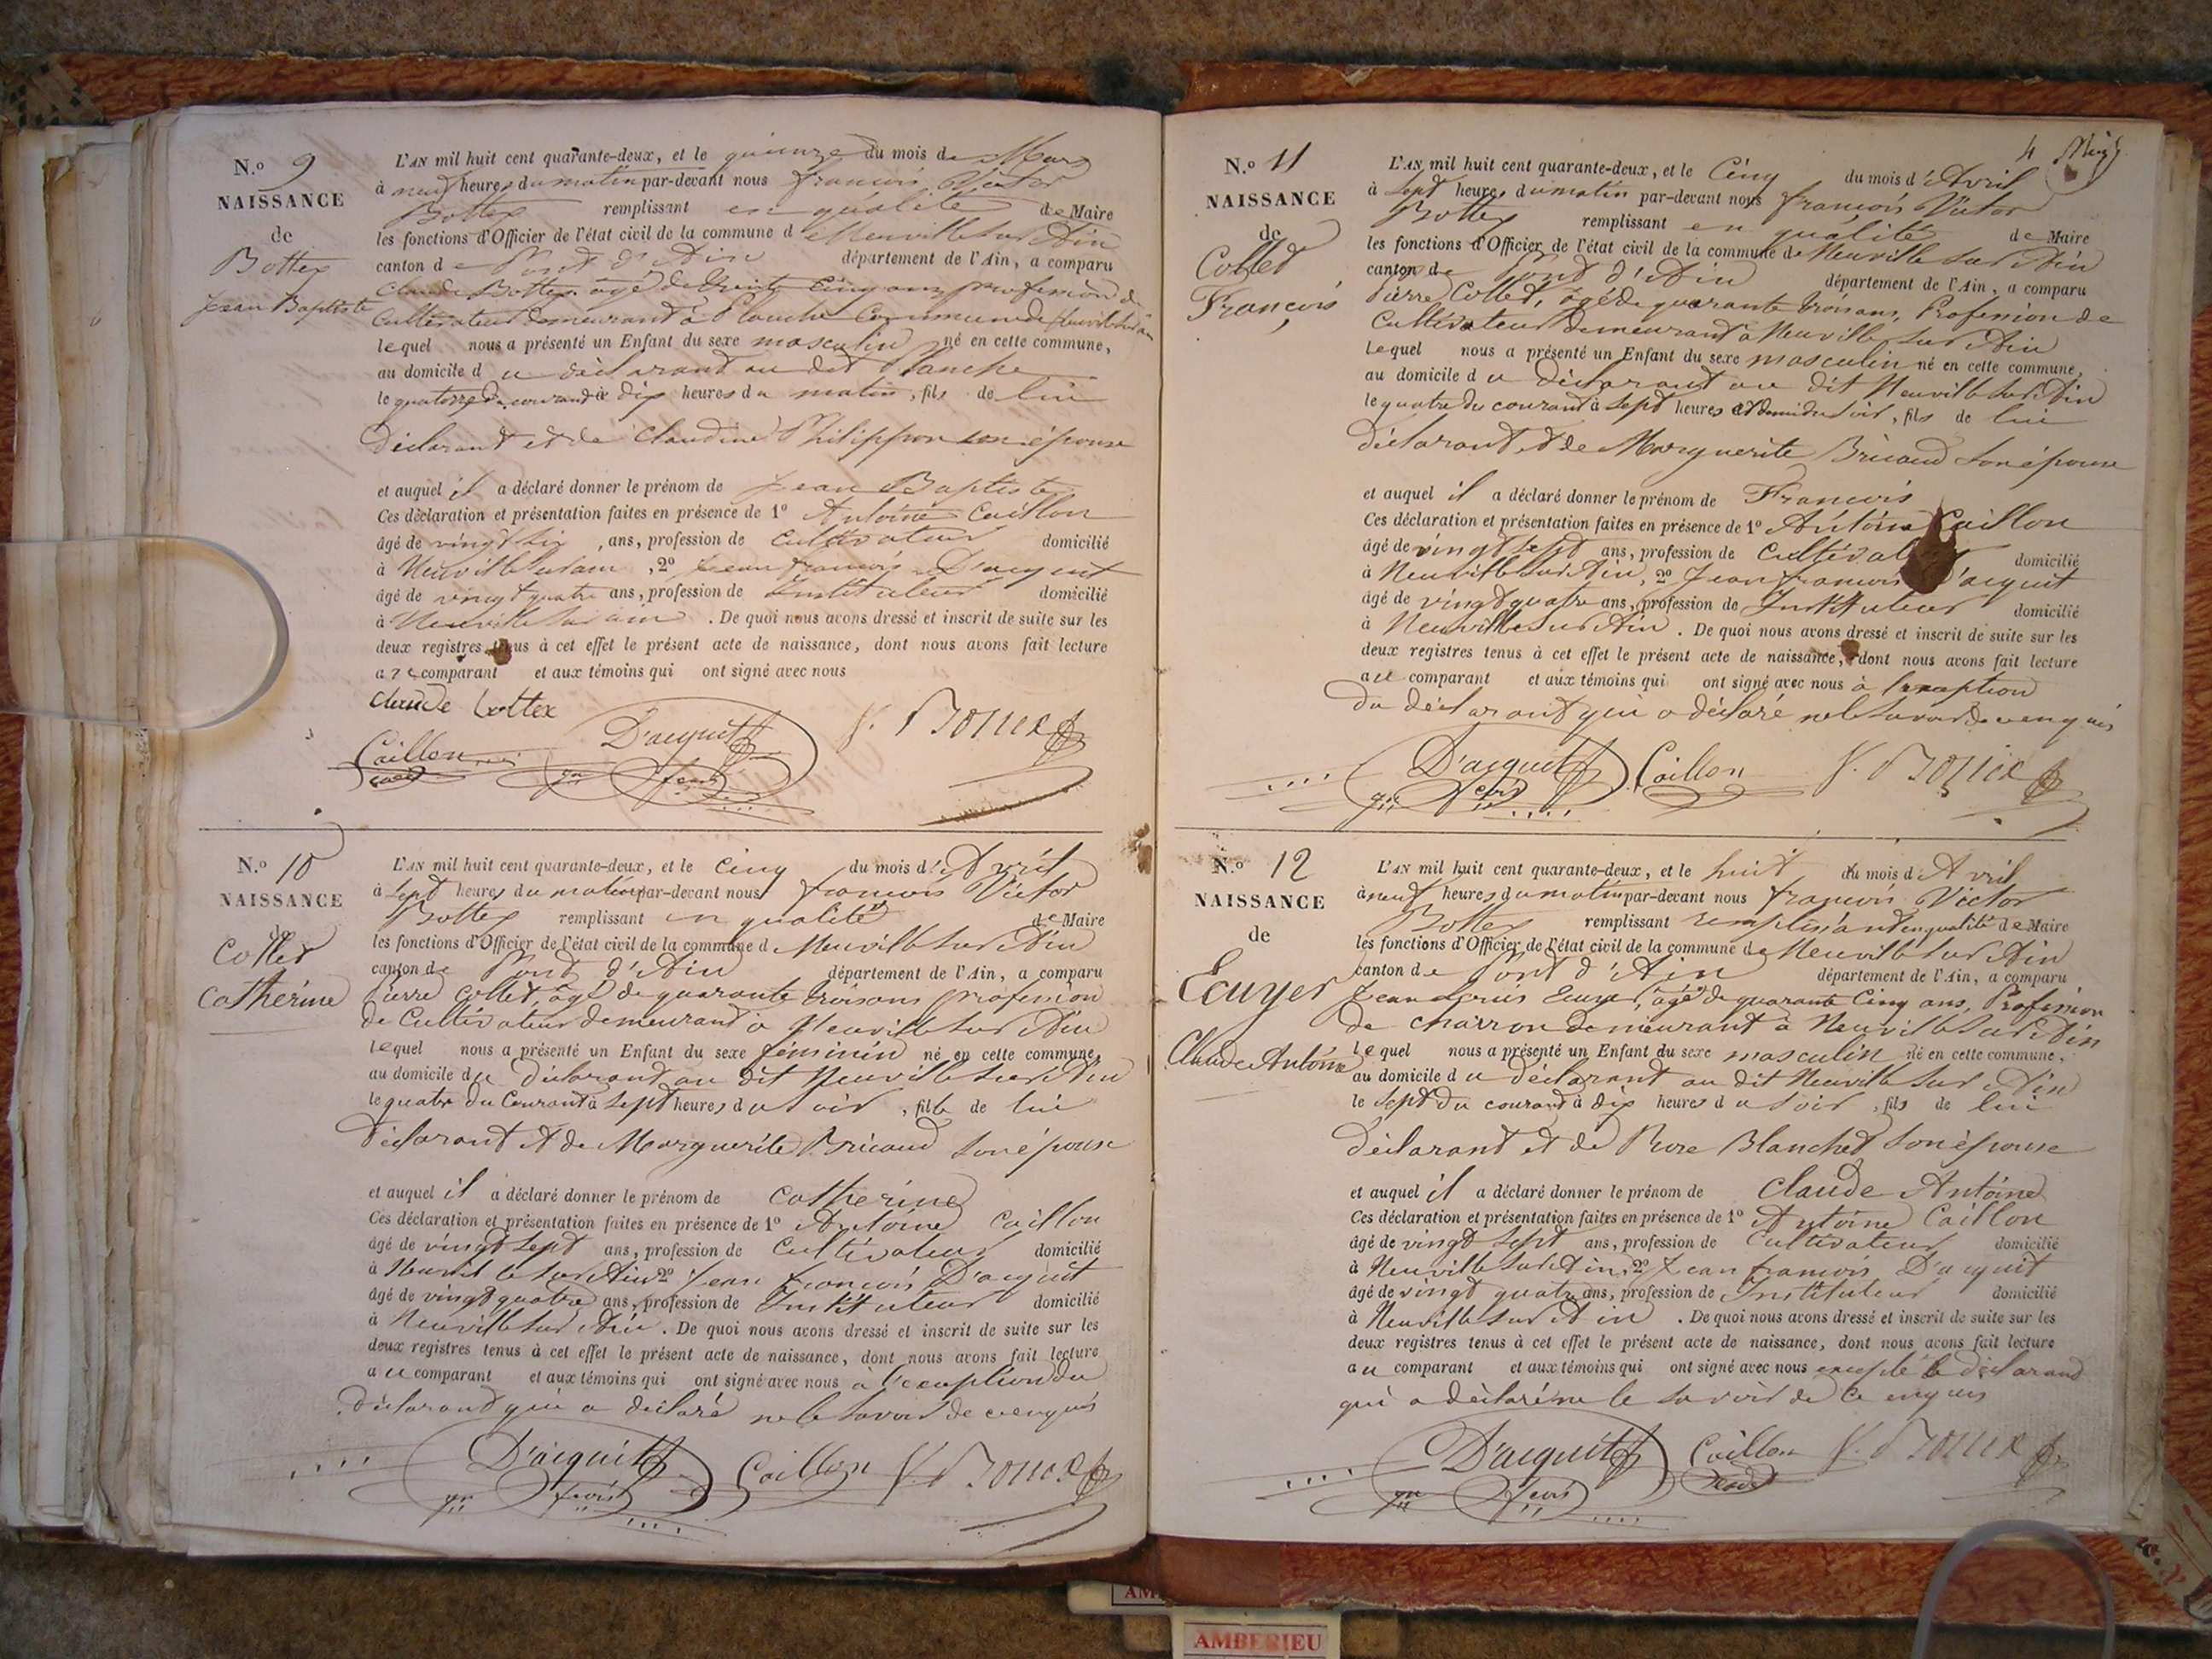 N.o 9
NAISSANCE
de
Bottex
Jean Baptiste
L'AN mil huit cent quarante-deux, et le quinze du mois de Mars
à neuf heures du matin par-devant nous françois Victor
Bottex remplissant en qualité de Maire
les fonctions d'Officier de l'état civil de la commune de Neuville sur Ain
canton de Pont d'Ain département de l'Ain, a comparu
Claude Bottex âgé de trente cinq ans profession de
Cultivateur demeurant à Planche Commune de Neuville sur ain
lequel nous a présenté un Enfant du sexe masculin né en cette commune,
au domicile du déclarant au dit Planche
le quatorze du courant à dix heures du matin, fils de lui
déclarant et de Claudine Philippon son épouse
et auquel il a déclaré donner le prénom de Jean Baptiste
Ces déclaration et présentation faites en présence de 1o Antoine Caillon
âgé de vingt six, ans, profession de Cultivateur domicilié
à Neuville sur ain, 2o Jean françois D'acquit
âgé de vingt quatre ans, profession de Instituteur domicilié
à Neuville sur ain. De quoi nous avons dressé et inscrit de suite sur les
deux registres tenus à cet effet le présent acte de naissance, dont nous avons fait lecture
au comparant et aux témoins qui ont signé avec nous
Claude bottex
Caillon D'acquit f. Bottex
N.o 10
NAISSANCE
de
Collet
Catherine
L'AN mil huit cent quarante-deux, et le Cinq du mois d'Avril
à Sept heures du matin par-devant nous françois Victor
Bottex remplissant en qualité de Maire
les fonctions d'Officier de l'état civil de la commune d Neuville sur Ain
canton de Pont d'Ain département de l'Ain, a comparu
Pierre Collet, âgé de quarante troisans profession
de Cultivateur demeurant à Neuville sur Ain
lequel nous a présenté un Enfant du sexe féminin né en cette commune,
au domicile du déclarant au dit Neuville sur Ain
le quatre du Courant à Sept heures du Soir, fille de lui
déclarant et de Marguerite Bricaud son épouse
et auquel il a déclaré donner le prénom de Catherine
Ces déclaration et présentation faites en présence de 1o Antoine Caillon
âgé de vingt sept ans, profession de Cultivateur domicilié
à Neuville sur Ain 2o Jean françois D'acquit
âgé de vingt quatre ans, profession de Instituteur domicilié
à Neuville sur Ain. De quoi nous avons dressé et inscrit de suite sur les
deux registres tenus à cet effet le présent acte de naissance, dont nous avons fait lecture
au comparant et aux témoins qui ont signé avec nous à l'exception du
déclarant qui a déclaré ne le savoir de ce enquis
D'acquit Caillon f. Bottex
4
N.o 11
NAISSANCE
de
Collet
François
L'AN mil huit cent quarante-deux, et le Cinq du mois d'Avril
à Sept heures du matin par-devant nous françois Victor
Bottex remplissant en qualité de Maire
les fonctions d'Officier de l'état civil de la commune de Neuville sur Ain
canton de Pont d'Ain département de l'Ain, a comparu
Pierre Collet, âgé de quarante troisans, Profession de
Cultivateur demeurant à Neuville sur Ain
Lequel nous a présenté un Enfant du sexe masculin né en cette commune,
au domicile du déclarant au dit Neuville sur Ain
le quatre du courant à sept heures et demi du soir, fils de lui
déclarant et de Marguerite Bricaud son épouse
et auquel il a déclaré donner le prénom de François
Ces déclaration et présentation faites en présence de 1o Antoine Caillon
âgé de vingt sept ans, profession de Cultivat domicilié
à Neuville sur Ain, 2o Jean françois D'acquit
âgé de vingt quatre ans, profession de Instituteur domicilié
à Neuville sur Ain. De quoi nous avons dressé et inscrit de suite sur les
deux registres tenus à cet effet le présent acte de naissance, dont nous avons fait lecture
au comparant et aux témoins qui ont signé avec nous à l'exception
du déclarant qui a déclaré ne le savoir de ce enquis
D'acquit Caillon f. Bottex
N.o 12
NAISSANCE
de
Ecuyer
Claude Antoine
L'AN mil huit cent quarante-deux, et le huit du mois d'Avril
à neuf heures du matin par-devant nous françois Victor
Bottex remplissant remplissant en qualité de Maire
les fonctions d'Officier de l'état civil de la commune de Neuville sur Ain
canton de Pont d'Ain département de l'Ain, a comparu
Jean Ecuyer, âgé de quarante Cinq ans, Profession
de charron demeurant à Neuville sur Ain
Lequel nous a présenté un Enfant du sexe masculin né en cette commune,
au domicile du déclarant au dit Neuville sur Ain
le Sept du courant à dix heures du Soir, fils de lui
déclarant et de Rose Blanchet son épouse
et auquel il a déclaré donner le prénom de Claude Antoine
Ces déclaration et présentation faites en présence de 1o Antoine Caillon
âgé de vingt sept ans, profession de Cultivateur domicilié
à Neuville sur Ain, 2o Jean françois D'acquit
âgé de vingt quatre ans, profession de Instituteur domicilié
à Neuville sur Ain. De quoi nous avons dressé et inscrit de suite sur les
deux registres tenus à cet effet le présent acte de naissance, dont nous avons fait lecture
au comparant et aux témoins qui ont signé avec nous excepté le déclarant
qui a déclaré ne le savoir de ce enquis
D'acquit Caillon f. Bottex
AMBERIEU